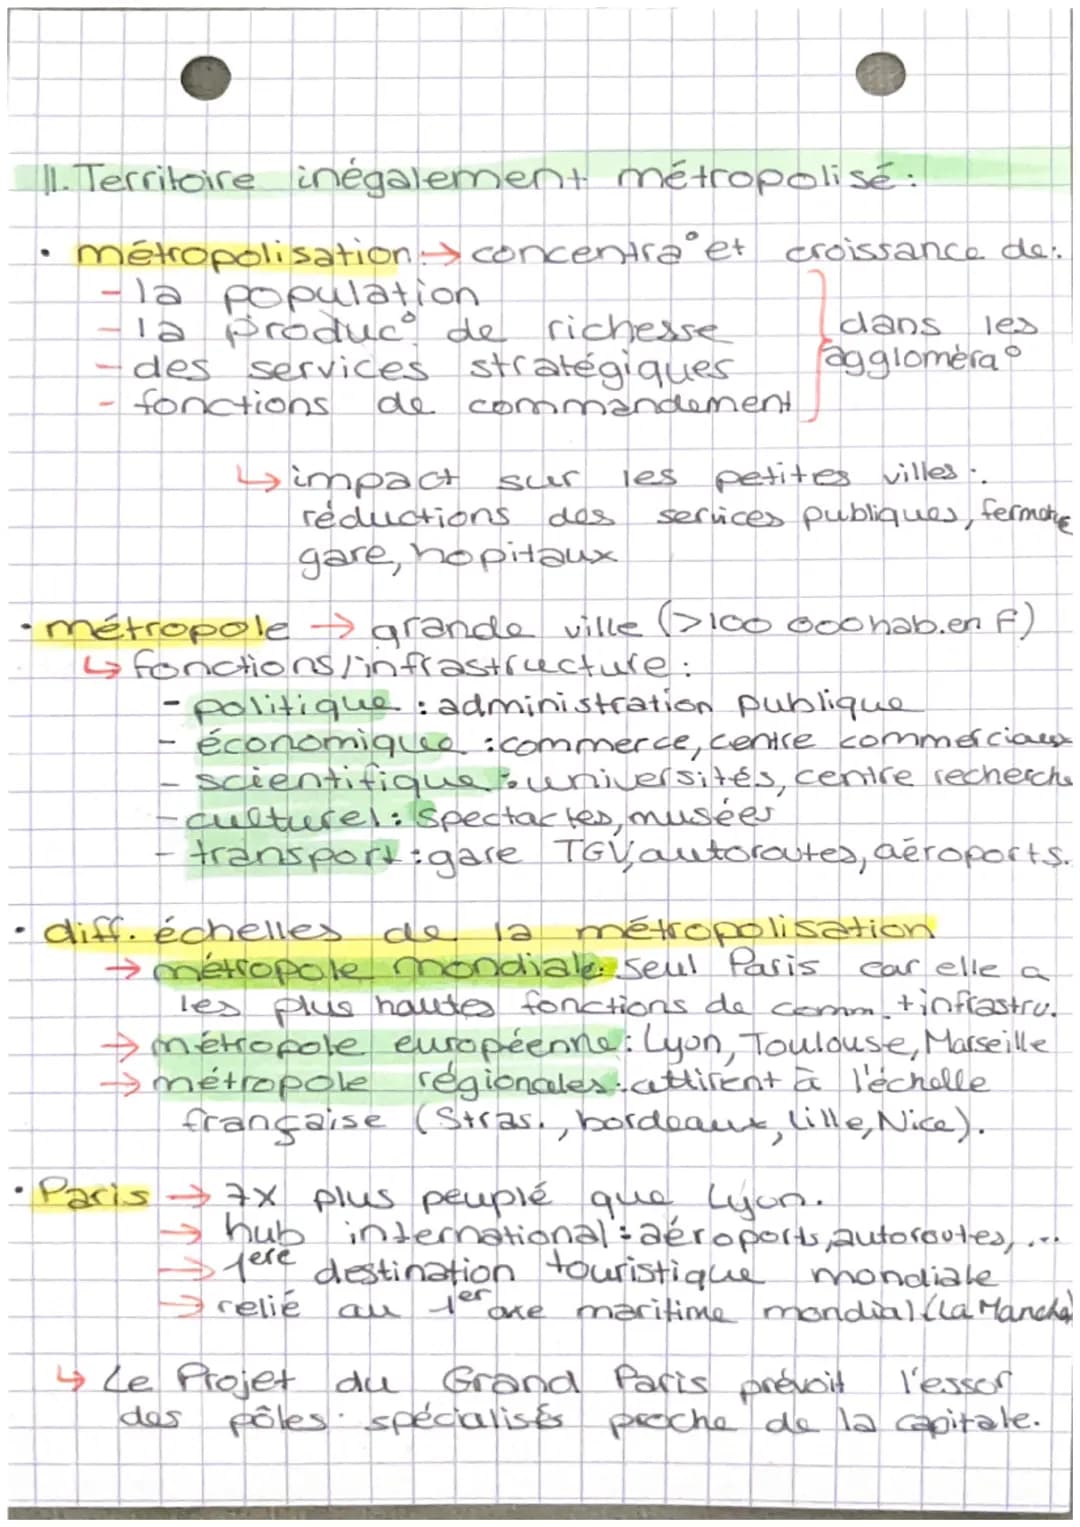 II. Territoire inégalement métropolisé :
• métropolisation → concentra° et croissance de :
- la population
- la produc° de richesse
- des services stratégiques
- fonctions de commandement
dans les
aggloméra°
↳ impact sur les petites villes :
réductions des services publiques, fermeture
gare, hopitaux
• métropole → grande ville (>100 000 hab. en F)
↳ fonctions/infrastructure :
- politique : administration publique
- économique : commerce, centre commerciaux
- scientifique : universités, centre recherche
- culturel : spectacles, musées
- transport : gare TGV, autoroutes, aéroports.
• diff. échelles de la métropolisation
→ métropole mondiale : seul Paris car elle a
les plus hautes fonctions de comm. + infrastru.
→ métropole européenne : Lyon, Toulouse, Marseille
→ métropole régionales : attirent à l'échelle
française (Stras., bordeaux, Lille, Nice).
• Paris → 7X plus peuplé que Lyon.
→ hub international : aéroports, autoroutes, ...
→ 1ere destination touristique mondiale
→ relié au 1er axe maritime mondial (La Manche)
↳ Le Projet du Grand Paris prévoit l'essor
des pôles spécialisés proche de la capitale.